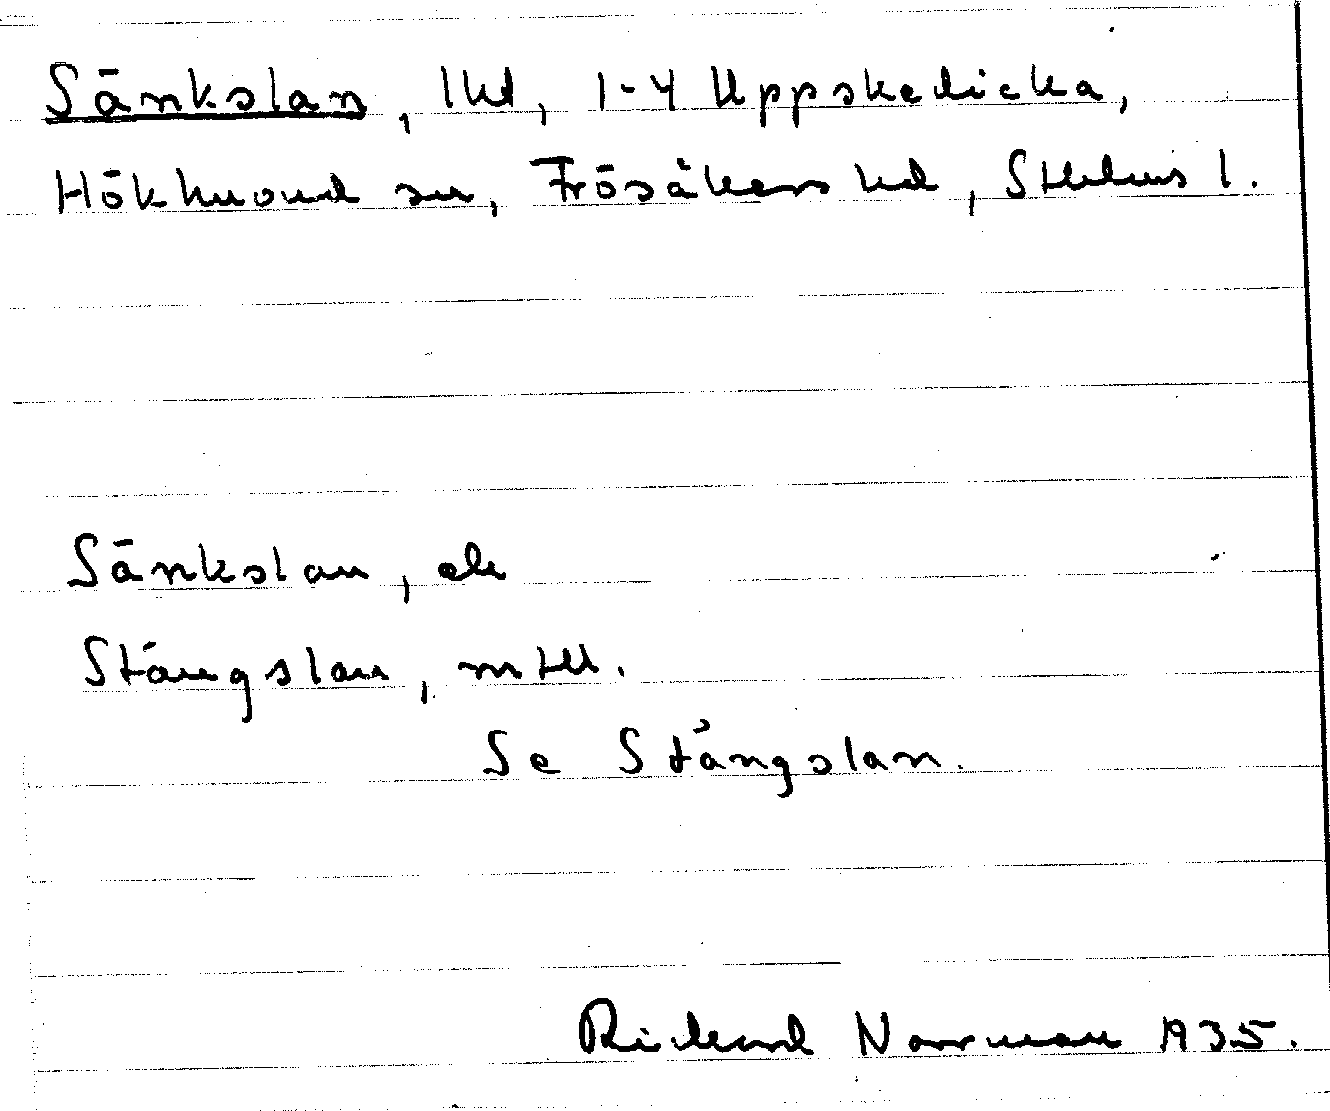 Sänkslan, lkt, 1-4 Uppskedicka,
Hökhuvud sn, Frösåkers hd, Sthlms l.
Sänkslan, ele
Stängslan, mtll.
Se Stångslan.
Rickard Norrman 1935.